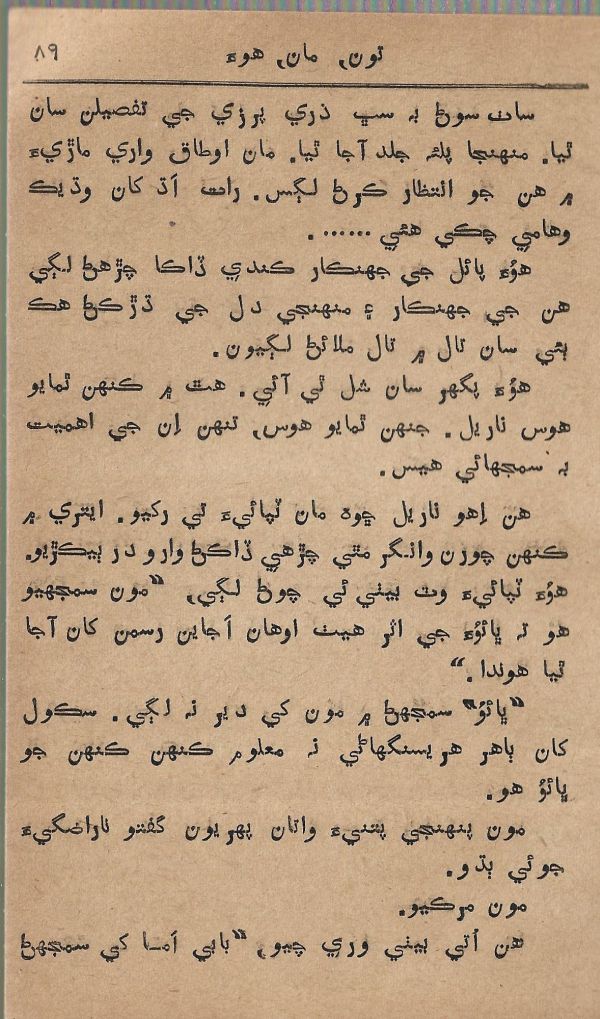 تون, مان, هوءَ
۸۹
سات سوڻ به سڀ ذري پرزي جي تفصيلن سان
ٿيا. منهنجا پلئه جلد آجا ٿيا. مان اوطاق واري ماڙيءَ
۾ هن جو انتظار ڪرڻ لڳس. رات اَڌ کان وڌيڪ
وهامي چڪي هئي .......
هوُءَ پائل جي جهنڪار ڪندي ڏاڪا چڙهڻ لڳي
هن جي جهنڪار ۽ منهنجي دل جي ڌڙڪڻ هڪ
ٻئي سان تال ۾ تال ملائڻ لڳيون.
هوُءَ پگهر سان شل ٿي آئي. هٿ ۾ ڪنهن ٿمايو
هوس ناريل. جنهن ٿمايو هوس, تنهن اِن جي اهميت
به سمجهائي هيس.
هن اِهو ناريل ڇوهه مان ٽپائيءَ تي رکيو. ايتري ۾
ڪنهن چورن وانگر مٿي چڙهي ڏاڪڻ وارو در ٻيڪڙيو.
هوُءَ ٽپائيءَ وٽ بيٺي ئي چوڻ لڳي, “مون سمجهيو
هو ته ڀائوُءَ جي اثر هيٺ اوهان اَجاين رسمن کان آجا
ٿيا هوندا.“
“ڀائوُ” سمجهڻ ۾ مون کي دير نه لڳي. سڪول
کان ٻاهر هريسنگهاڻي نه معلوم ڪنهن ڪنهن جو
ڀائوُ هو.
مون پنهنجي پتنيءَ واتان پهريون گفتو ناراضگيءَ
جوئي ٻڌو.
مون مرڪيو.
هن اُتي بيٺي وري چيو, “ٻاٻي اَمسا کي سمجهڻ